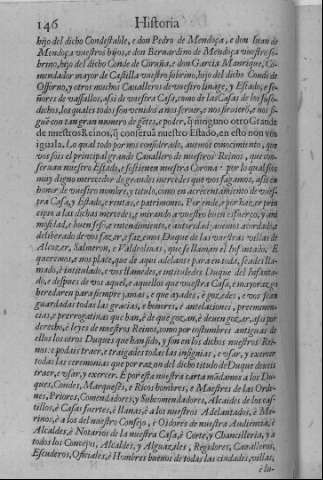 146 Historia
hijo del dicho Condestable, e don Pedro de Mendoça, e don Iuan de
Mendoça vuestros hijos, e don Bernardino de Mendoça vuestro so-
brino, hijo del dicho Conde de Coruña, e don Garcia Manrique, Co-
mendador mayor de Castilla vuestro sobrino, hijo del dicho Conde de
Ossorno, y otros muchos Caualleros de vuestro linage, y Estado, e se-
ñores de vassallos, assi de vuestra Casa, como de las Casas de los suso-
dichos, los quales todos son venidos a nos seruir, e nos siruierõ, e nos si-
guẽ con tan gran numero de gẽtes, e poder, q̃ ninguno otro Grande
de nuestros Reinos, q̃ conserua nuestro Estado, en esto non vos
iguala. Lo qual todo por nos considerado, auemos conocimiento, que
vos sois el principal grande Cauallero de nuestros Reinos, que con-
seruan nuestro Estado, e sostienen nuestra Corona: por lo qual sois
muy digno merecedor de grandes mercedes que vos fagamos, assi en
honor de vuestro nombre, y titulo, como en acrecentamiento de vues-
tra Casa, y Estado, e rentas, e patrimonio. Por ende, e por hazer prin-
cipio a las dichas mercedes, e mirando a vuestro buen esfuerço, y ani-
mosidad, e buen seso, e entendimiento, e autoridad; auemos acordado, e
deliberado de vos fazer, e fazemos Duque de las vuestras villas de
Alcozer, Salmeron, e Valdeoliuas, que se llaman el Infantado. E
queremos, e nos place, que de aqui adelante para en toda, seades lla-
mado, e intitulado, e vos llamedes, e intituledes Duque del Infanta-
do, e despues de vos aquel, e aquellos que vuestra Casa, e mayorazgo
heredaren para siempre jamas, e que ayades, e gozedes, e vos sean
guardadas todas las gracias, e honores, e antelaciones, preeminen-
cias, e prerrogatiuas que han, e de que gozan, e deuen gozar, assi por
derecho, e leyes de nuestros Reinos, como por costumbres antiguas de
ellos los otros Duques que han sido, y son en los dichos nuestros Rei-
nos: e podais traer, e traigades todas las insignias, e vsar, y exercer
todas las ceremonias que por razon del dicho titulo de Duque deueis
traer, e vsar, y exercer. E por esta nuestra carta mãdamos a los Du-
ques, Condes, Marqueses, e Ricos hombres, e Maestres de las Orde-
nes, Priores, Comendadores, y Subcomendadores, Alcaides de los cas-
tillos, e Casas fuertes, e llanas, e a los nuestros Adelantados, e Me-
rinos, e a los del nuestro Consejo, e Oidores de nuestra Audiencia, e
Alcaldes, e Notarios de la nuestra Casa, e Corte, y Chancilleria, y a
todos los Concejos, Alcaldes, y Alguaziles, Regidores, Caualleros,
Escuderos, Oficiales, e Hombres buenos de todas las ciudades, villas,
e lu-